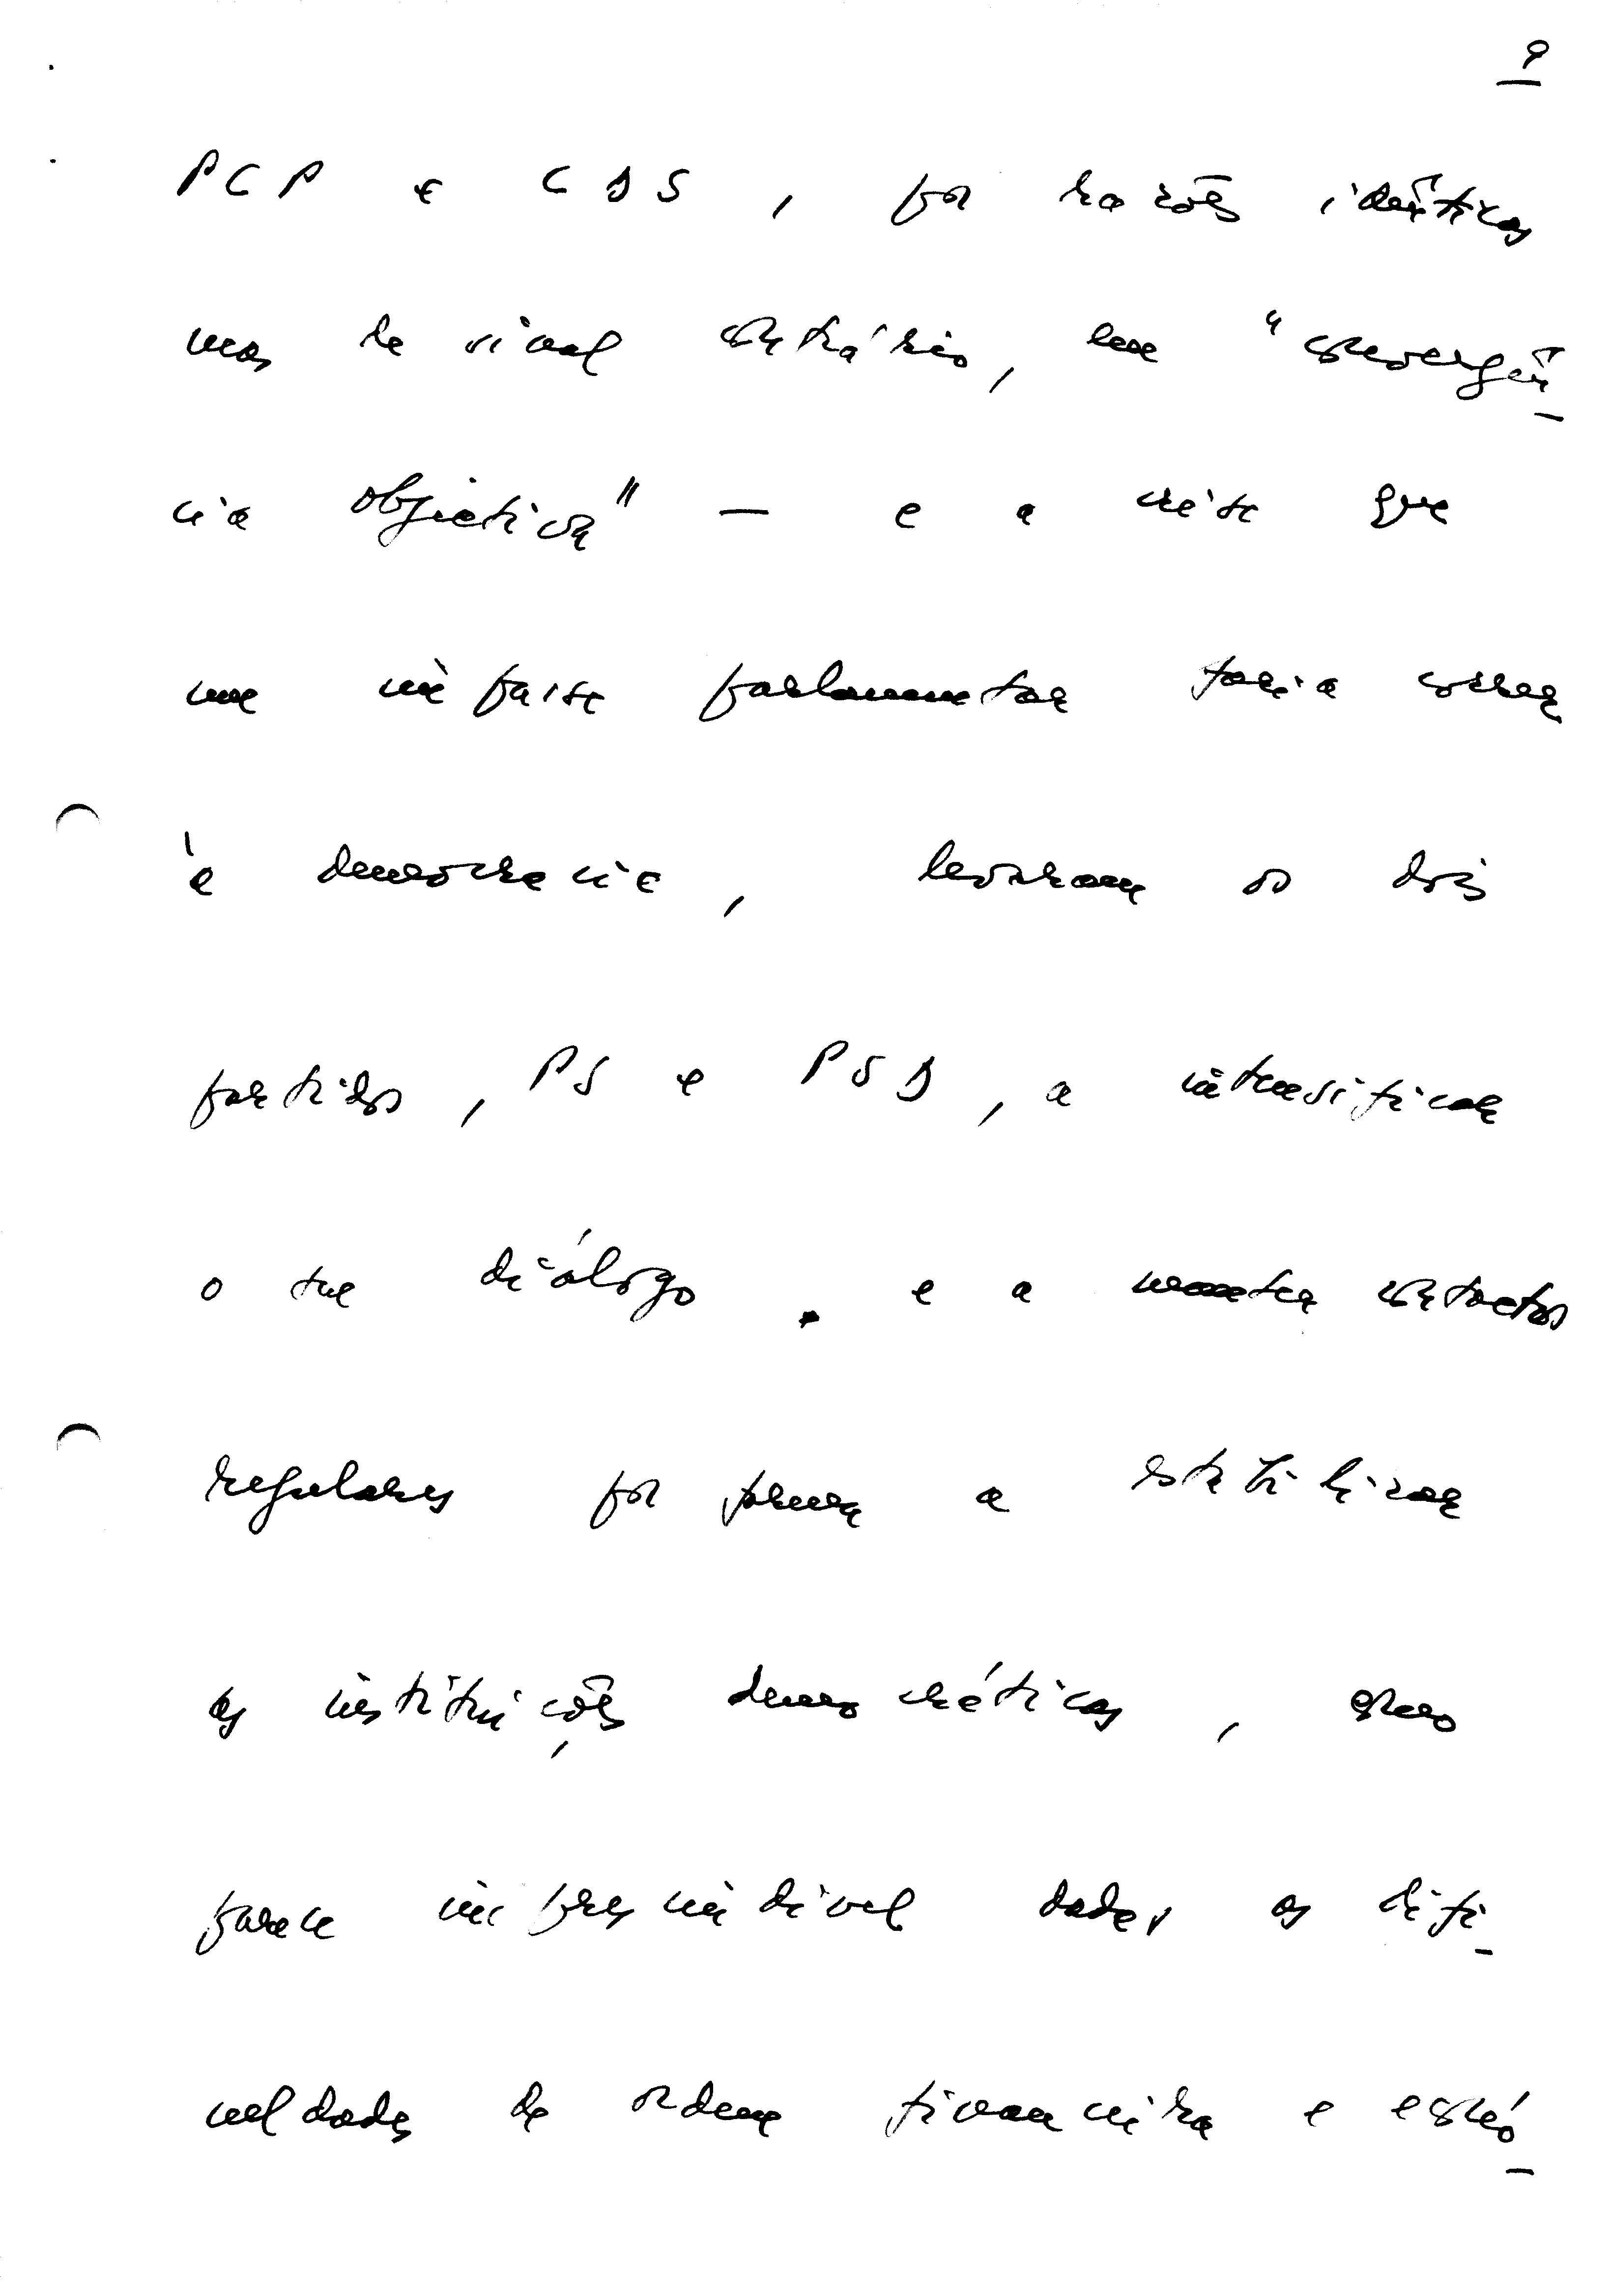 9
PCP e CDS, por razões idênticas
mas de sinal contrário, em "convergên-
cia objectiva" — e a crise que
um impasse parlamentar faria correr
à democracia, levaram os dois
partidos, PS e PSD, a intensificar
o seu diálogo e a manter contactos
regulares por forma a estabilizar
as instituições democráticas, como
parece imprescindível dadas as difi-
culdades de ordem financeira e econó-